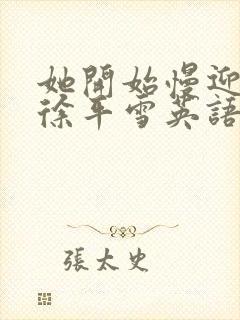 她開始慢迎
徐平雪英語
張太史